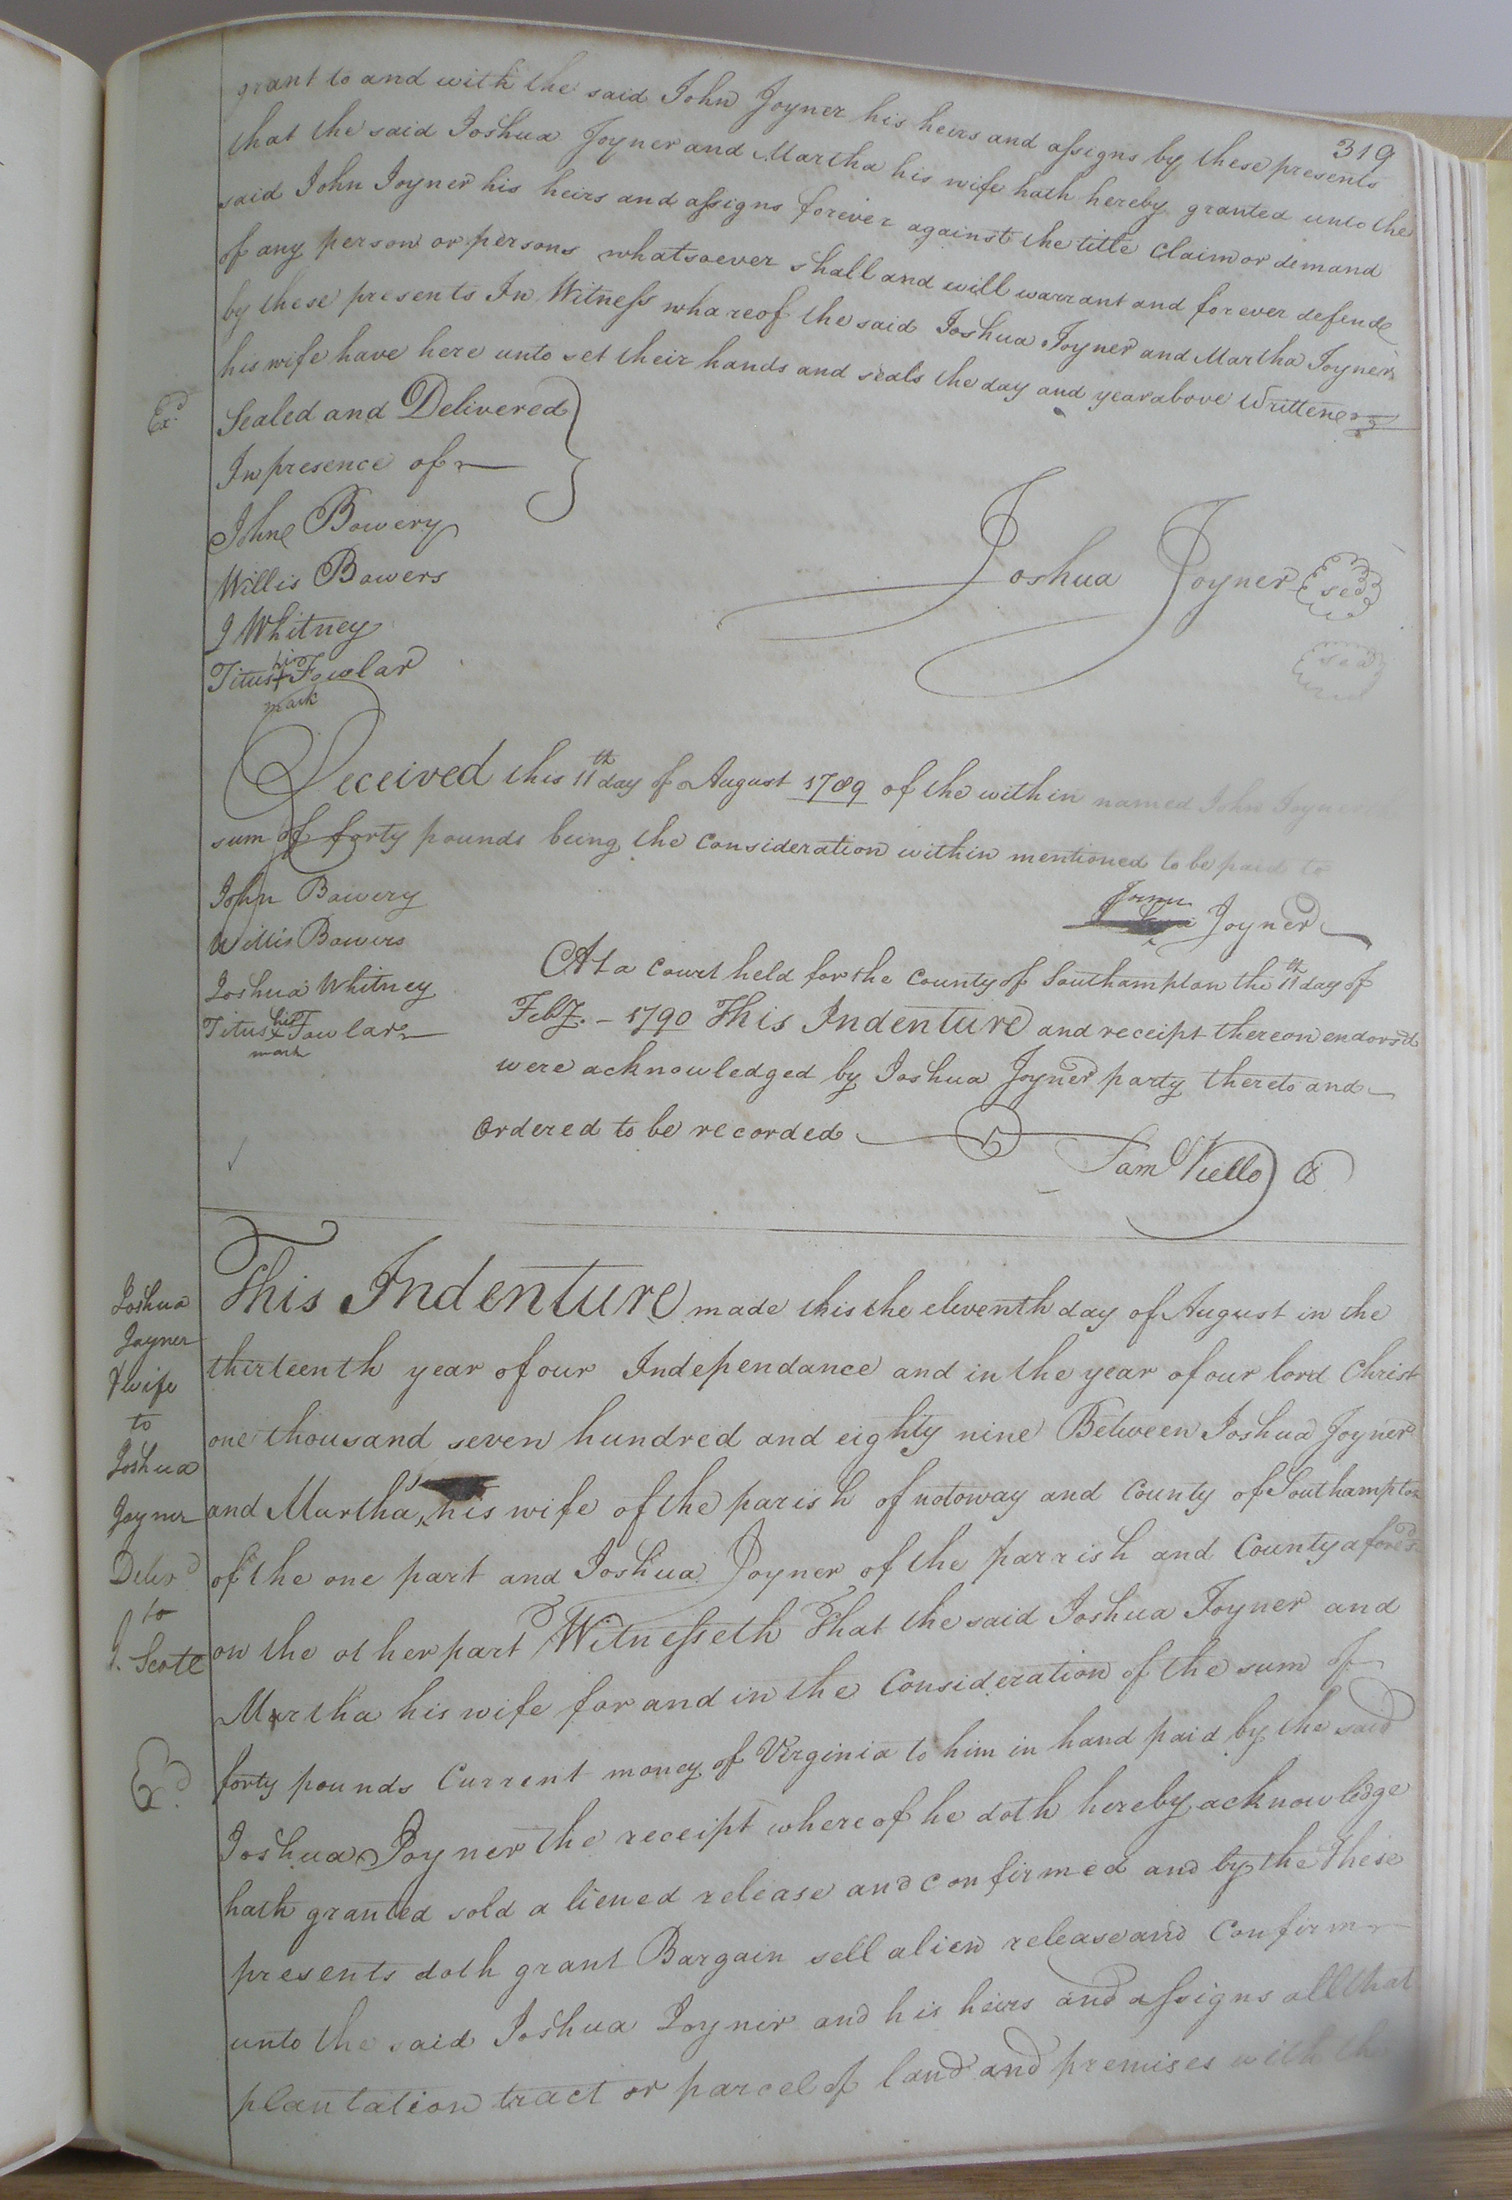 319
grant to and with the said John Joyner his heirs and assigns by these presents
that the said Joshua Joyner and Martha his wife hath hereby granted unto the
said John Joyner his heirs and assigns forever against the title Claim or demand
of any person or persons whatsoever shall and will warrant and forever defend
by these presents In Witness whareof the said Joshua Joyner and Martha Joyner
his wife have here unto set their hands and seals the day and year above Written
Exd
Sealed and Delivered
In presence of
John Bowery
Willis Bowers
J Whitney
Titus his Fowlar
mark
Joshua Joyner seal
seal
Received this 11th day of August 1789 of the within named John Joyner
sum of forty pounds being the Consideration within mentioned to be paid to
John Bowery
Willis Bowers
Joshua Whitney
Titus his Fowlar
mark
Joyner
At a Court held for the County of Southampton the 11th day of
Feby. - 1790 This Indenture and receipt thereon endorsd
were acknowledged by Joshua Joyner party thereto and
Ordered to be recorded
Sam Kello Cl
Joshua
Joyner
& wife
to
Joshua
Joyner
Delivd
to
J. Scott
Exd
This Indenture made this the eleventh day of August in the
thirteenth year of our Independance and in the year of our lord Christ
one thousand seven hundred and eighty nine Between Joshua Joyner
and Martha his wife of the parish of notoway and County of Southampton
of the one part and Joshua Joyner of the parrish and County aforesd
on the other part Witnesseth That the said Joshua Joyner and
Martha his wife for and in the Consideration of the sum of
forty pounds Current money of Virginia to him in hand paid by the said
Joshua Joyner the receipt whereof he doth hereby acknowledge
hath granted sold aliened release and confirmed and by the These
presents doth grant Bargain sell alien release and Confirm
unto the said Joshua Joyner and his heirs and assigns all that
plantation tract or parcel of land and premises with the